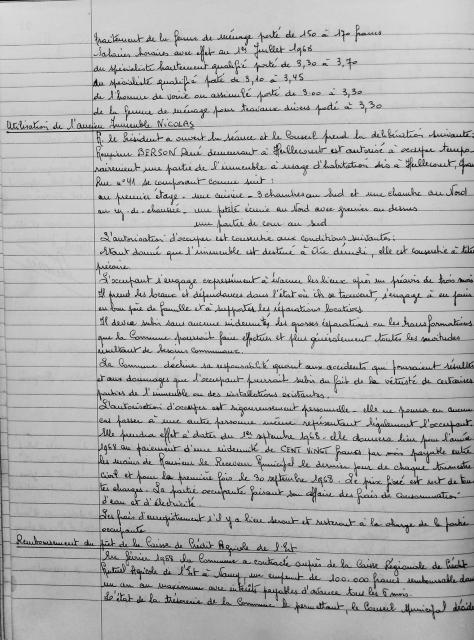 Traitement de la femme de ménage porté de 150 à 170 francs
Salaires horaires avec effet au 1er Juillet 1968
du spécialiste hautement qualifié porté de 3,30 à 3,70
du spécialiste qualifié porté de 3,10 à 3,45
de l'homme de voirie ou assimilé porté de 3.00 à 3,30
de la femme de ménage pour travaux divers porté à 3,30
Utilisation de l'ancien Immeuble NICOLAS
M. le Président a ouvert la séance et le Conseil prend la délibération suivante :
Monsieur BERSON René demeurant à Heillecourt est autorisé à occuper tempo
rairement une partie de l'immeuble à usage d'habitation sis à Heillecourt, Grande
Rue n° 41 se composant comme suit :
au premier étage - une cuisine - 3 chambres au Sud et une chambre au Nord
au rez-de-chaussée - une petite écurie au Nord avec grenier au dessus
une partie de cour au sud
L'autorisation d'occuper est consentie aux conditions suivantes :
Etant donné que l'immeuble est destiné à être démoli, elle est consentie à titre
précaire.
L'occupant s'engage expressément à évacuer les lieux après un préavis de trois mois
Il prend les locaux et dépendances dans l'état où ils se trouvent, s'engage à en jouir
en bon père de famille et à supporter les réparations locatives.
Il devra subir sans aucune indemnité les grosses réparations ou les transformations
que la Commune pourrait faire effectuer et plus généralement toutes les servitudes
résultant de besoins communaux.
La Commune décline sa responsabilité quant aux accidents qui pourraient résulter
et aux dommages que l'occupant pourrait subir du fait de la vétusté de certaines
parties de l'immeuble ou des installations existantes.
L'autorisation d'occuper est rigoureusement personnelle - elle ne pourra en aucun
cas passer à une autre personne même représentant légalement l'occupant.
Elle prendra effet à dater du 1er septembre 1968 - elle donnera lieu pour l'année
1968 au paiement d'une indemnité de CENT VINGT francs par mois payable entre
les mains de Monsieur le Receveur Municipal le dernier jour de chaque trimestre
civil et pour la première fois le 30 septembre 1968. Le prix fixé est net de tou
tes charges. La partie occupante faisant son affaire des frais de consommation
d'eau et d'électricité.
Les frais d'enregistrement s'il y a lieu seront et resteront à la charge de la partie
occupante
Remboursement du prêt de la Caisse de Crédit Agricole de l'Est
En février 1968 la Commune a contracté auprès de la Caisse Régionale de Crédit
Mutuel Agricole de l'Est à Nancy, un emprunt de 100.000 francs remboursable dans
un an au maximum avec intérêts payables d'avance tous les 6 mois.
L'état de la trésorerie de la Commune le permettant, le Conseil Municipal décide